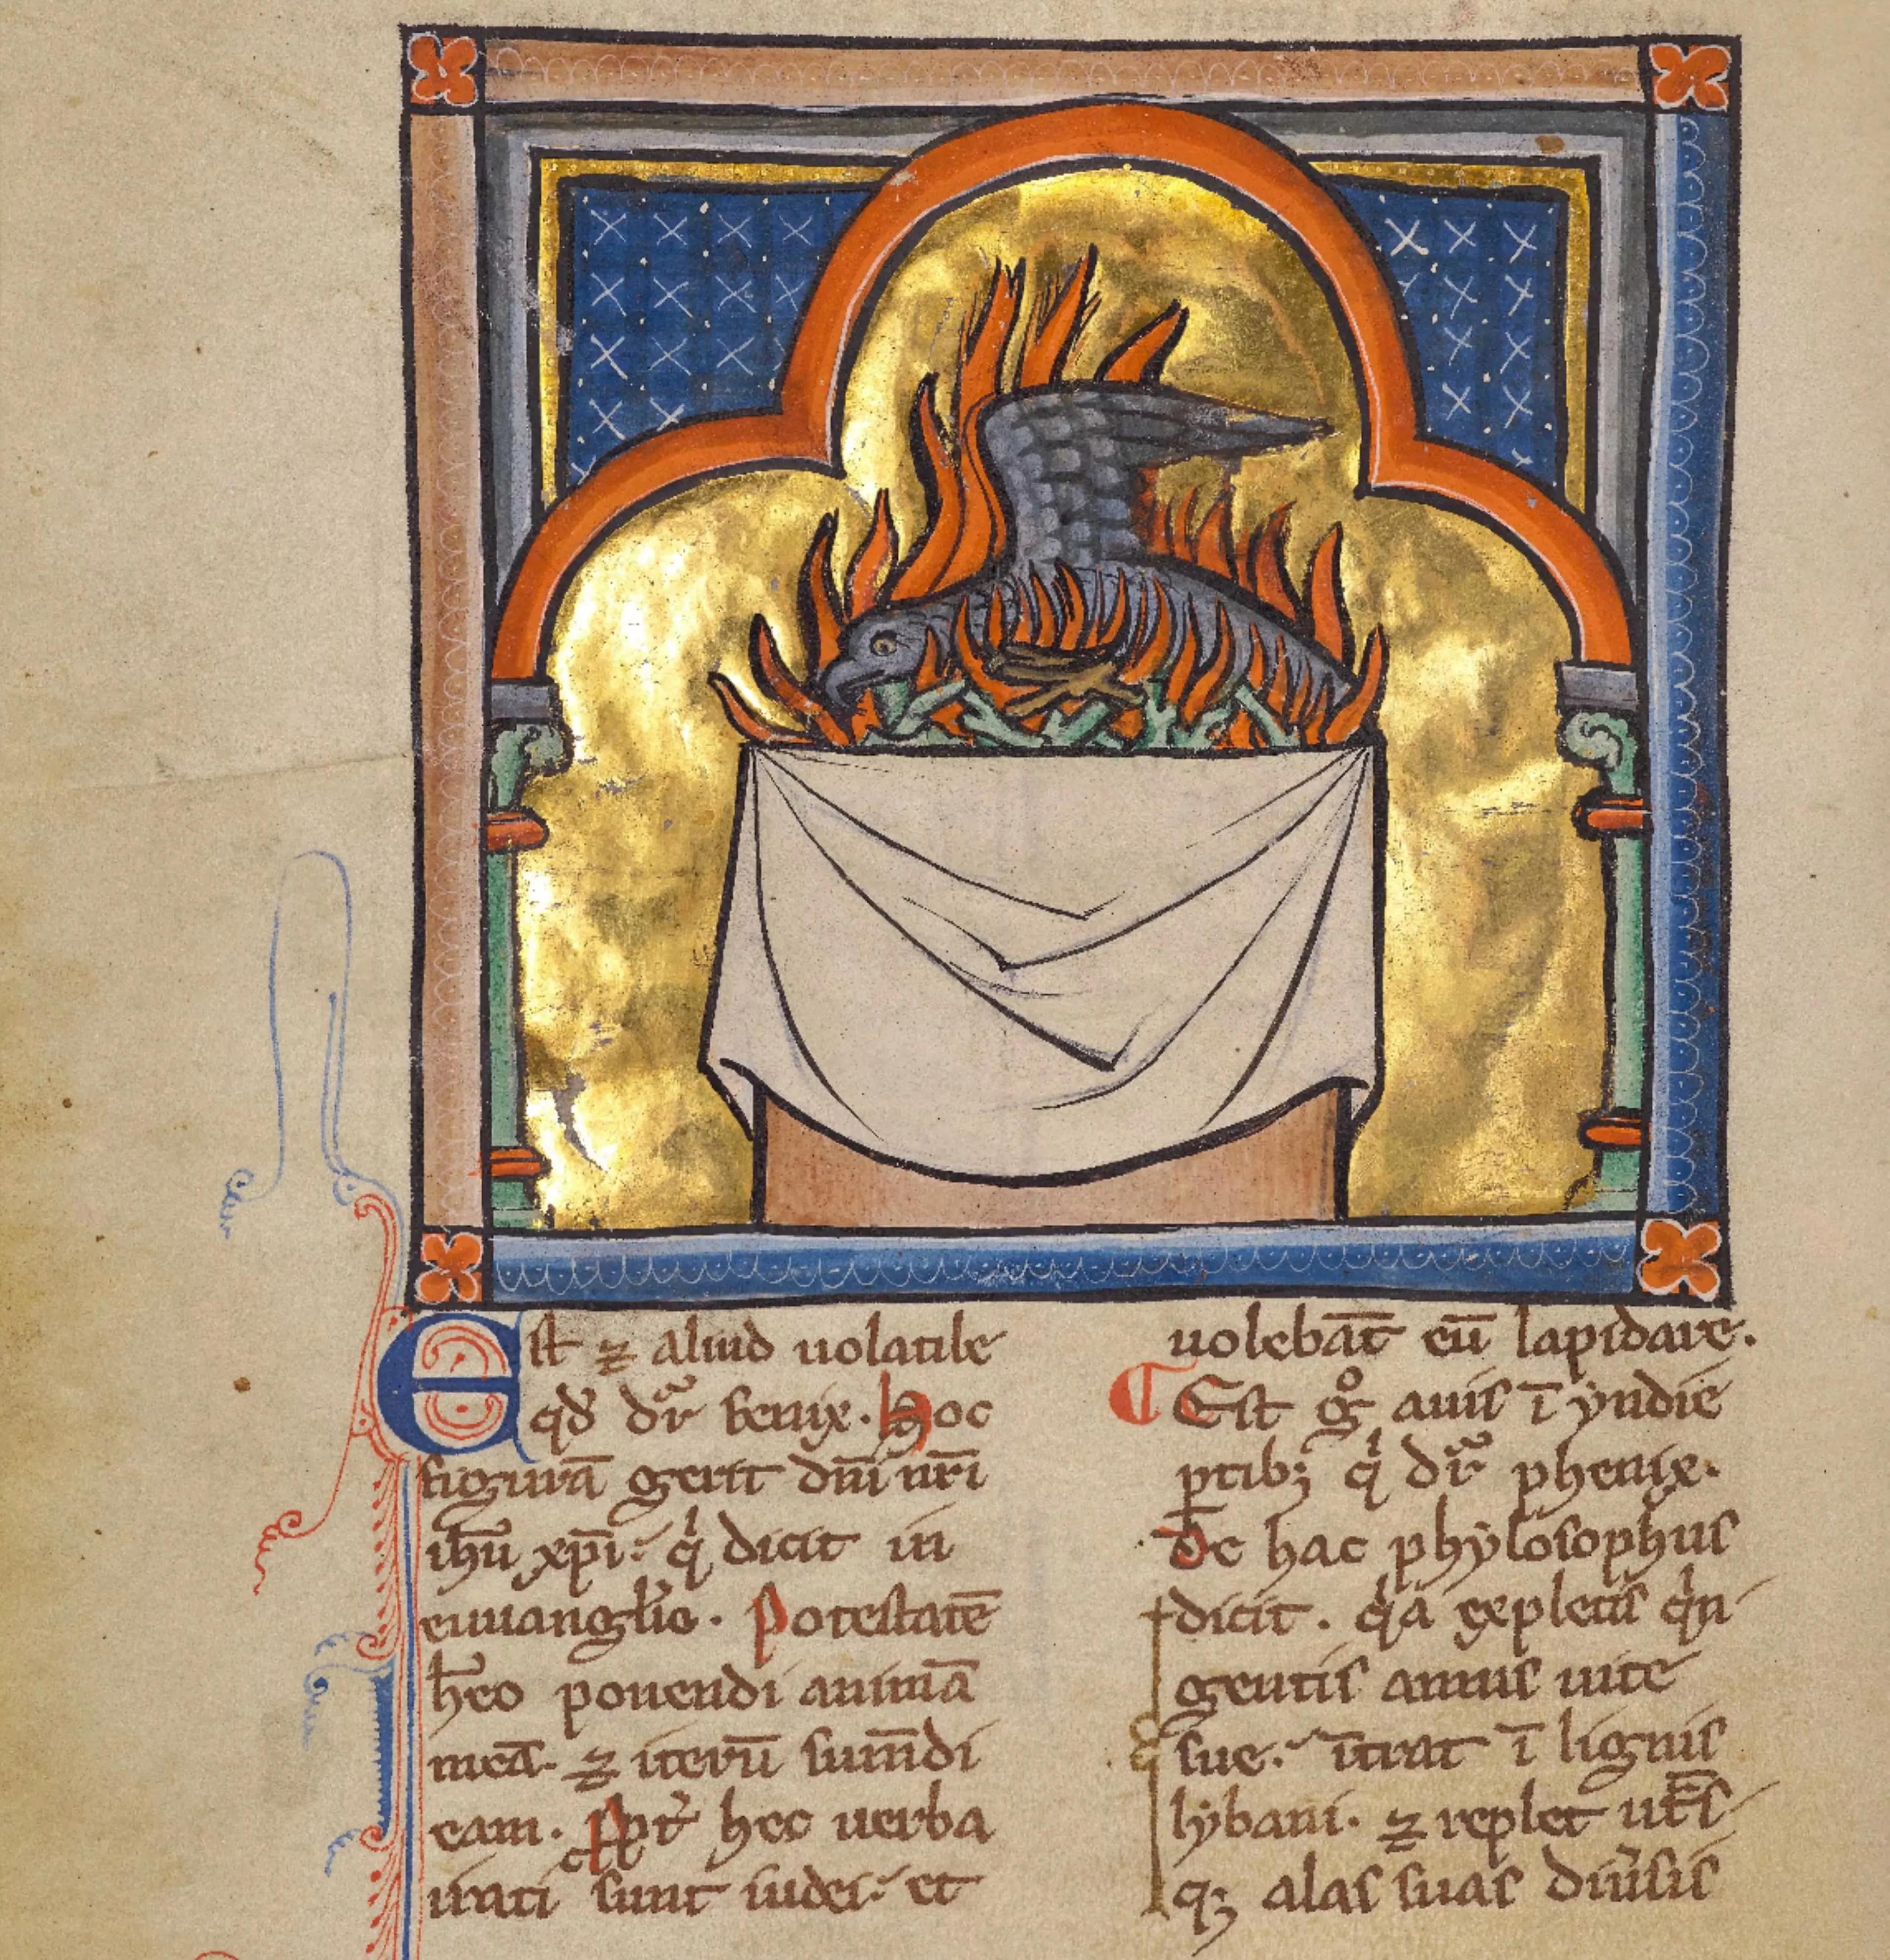 Est ⁊ aliud uolatile
qd̄ dr̄ fenix. Hoc
figurā gerit dn̄i nr̄i
ihū xp̄i. q̇ dicit in
euuangl̄io. Potestatē
h̄eo ponendi animā
meā. ⁊ iterū sum̄di
eam. Ppt̄ hec uerba
irati sunt iudei. et
uolebāt eū lapidare.
Est gͦ auis ī yndie
ptib; q̇ dr̄ phenix.
De hac phylosophus
dicit. q̇a expletis q̇n
gentis annis uite
sue. ītrat ī lignis
lybani. ⁊ replet ut̄s
q; alas suas diuͥsis